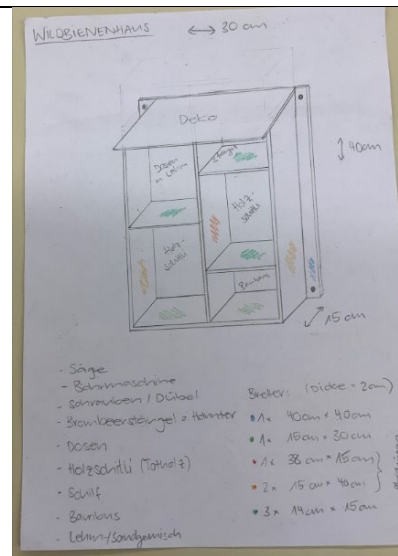 WILDBIENENHAUS
↔ 30 cm
Deko
↕ 40cm
Dosen
Lehm
Holz-
schitli
Holz-
schitli
Bambus
15 cm
- Säge
- Bohrmaschine
- Schrauben / Dübel
- Brombeerstängel
- Dosen
- Holzschitli (Totholz)
- Schilf
- Bambus
- Lehm-/Sandgemisch
Bretter: (Dicke = 2cm)
1x 40cm * 40cm
1x 15cm * 30cm
1x 38cm * 15cm
2x 15cm * 40cm
3x 14cm * 15cm